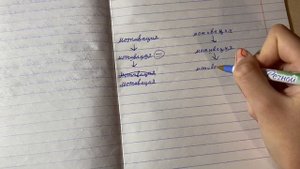 мотивация
мотивация
мотивация
мотивация
мотивация
мотивация
мотив